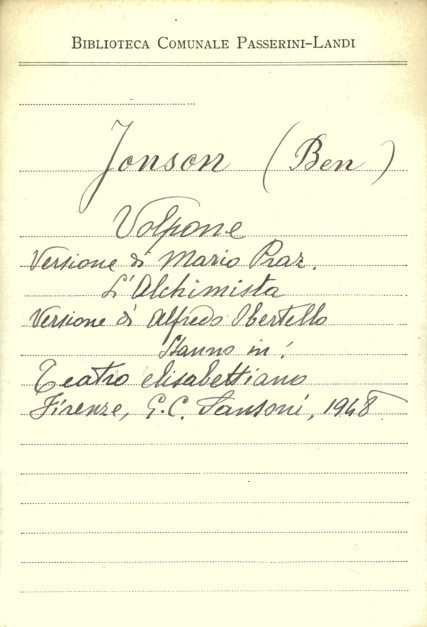 BIBLIOTECA COMUNALE PASSERINI-LANDI
Jonson (Ben)
Volpone
Versione di Mario Praz.
L'Alchimista
Versione di Alfredo Obertello
Stanno in:
Teatro elisabettiano
Firenze, G.C. Sansoni, 1948